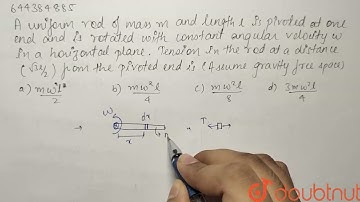 644384885
A uniform rod of mass m and length l is pivoted at one
end and is rotated with constant angular velocity w
in a horizontal plane. Tension in the rod at a distance
from the pivoted end is (Assume gravity free space)
a) mw²l²/2 b) mw²l/4 c) mw²l/8 d) 3mw²l/4
w dx T
x
doubtnut